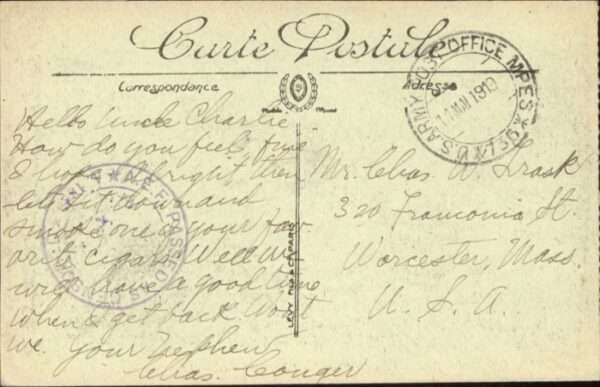 Carte Postale
Correspondance
Adresse
U.S. ARMY POST OFFICE M.P.E.S.
1919
A.E.F. PASSED AS CENSORED
LEVY FILS & Cie PARIS
Hello Uncle Charlie
How do you feel fine
I hope. Allright then
lets sit down and
smoke one of your fav-
orite cigars. Well we
will have a good time
when I get back Wont
we. Your Nephew
Chas. Conger
Mr. Chas. W. Trask
320 Framonia St.
Worcester, Mass.
U. S. A.